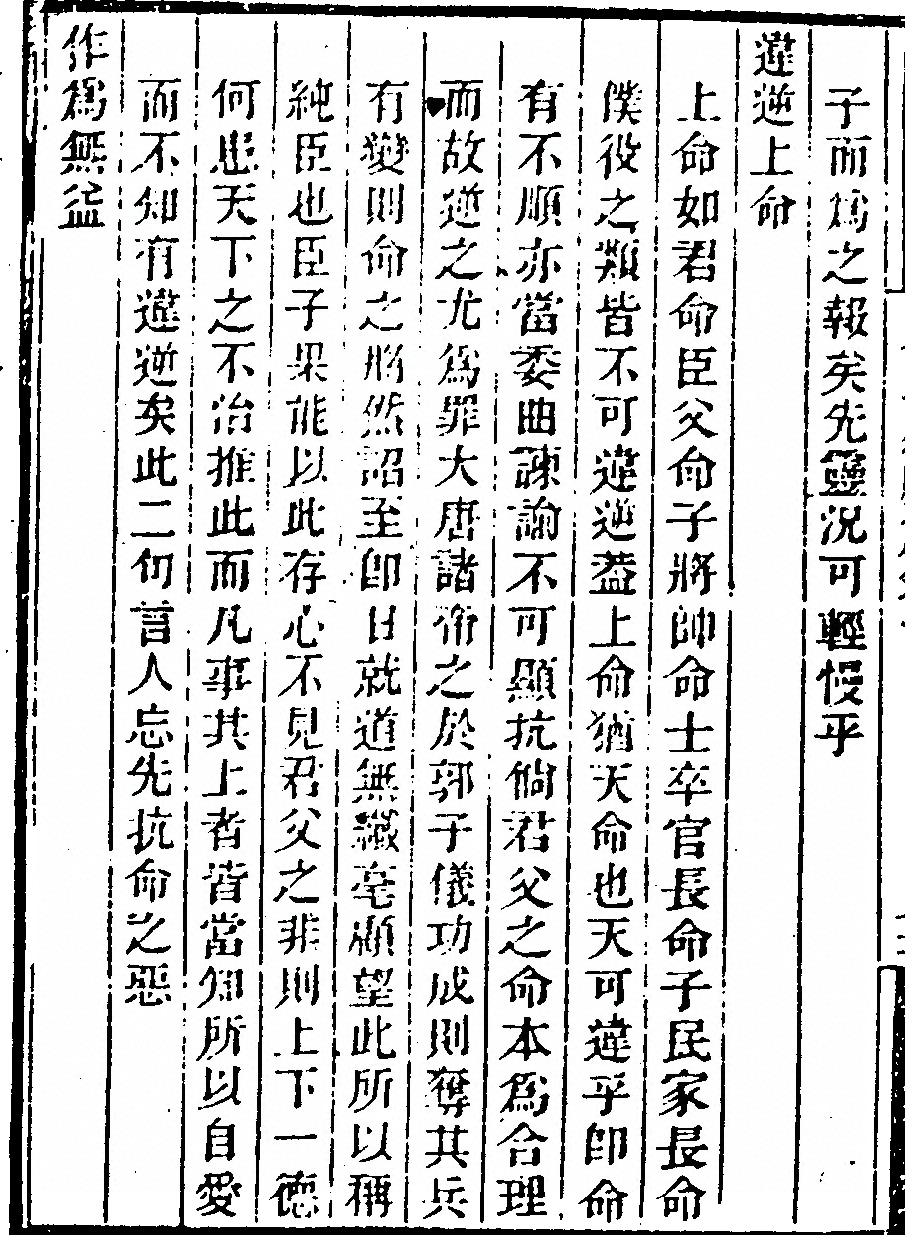 子而爲之報矣先靈況可輕慢乎
違逆上命
上命如君命臣父命子將帥命士卒官長命子民家長命
僕役之類皆不可違逆蓋上命猶天命也天可違乎卽命
有不順亦當委曲諫諭不可顯抗倘君父之命本爲合理
而故逆之尤爲罪大唐諸帝之於郭子儀功成則奪其兵
有變則命之將然詔至卽日就道無纖毫顧望此所以稱
純臣也臣子果能以此存心不見君父之非則上下一德
何患天下之不治推此而凡事其上者皆當知所以自愛
而不知有違逆矣此二句言人忘先抗命之惡
作爲無益